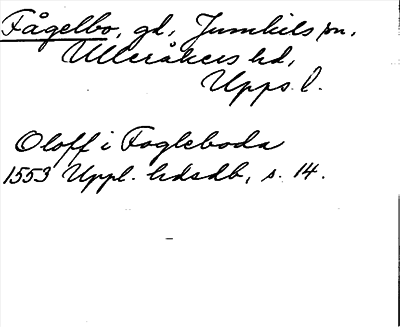 Fågelbo, gd, Jumkils sn,
Ulleråkers hd,
Upps. l.
Oloff i Fogleboda
1553 Uppl. hdsdb, s. 14.